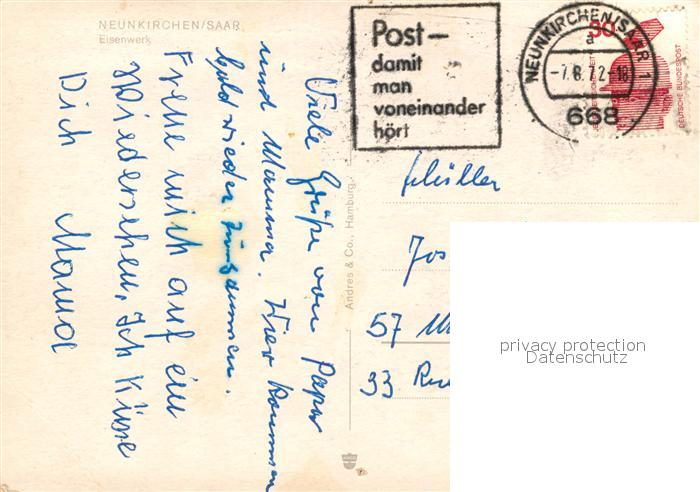 NEUNKIRCHEN/SAAR
Eisenwerk
Viele Grüße von Papa
und Mamma. Wier kommen
bald wieder zusammen.
Freue mich auf ein
Wiedersehen. Ich Küsse
Dich Mama
Andres & Co., Hamburg
Post—
damit
man
voneinander
hört
NEUNKIRCHEN/SAAR 1
a
-7.8.72-18
668
30
DEUTSCHE BUNDESPOST
Schüller
Jos
57
33
privacy protection
Datenschutz